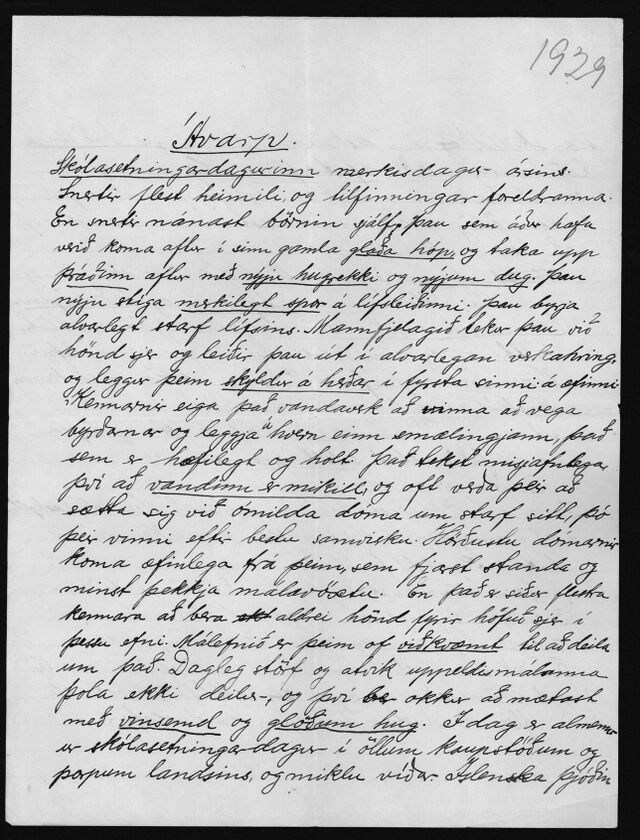 1939
Ávarp.
Skólasetningardagurinn merkisdagur ársins.
Snertir flest heimili, og tilfinningar foreldranna.
En snertir nánast börnin sjálf, þau sem áður hafa
verið koma aftur í sinn gamla glaða hóp, og taka upp
þráðinn aftur með nýju hugrekki og nýjum dug. Þau
nýju stiga merkilegt spor á lífsleiðinni. Þau byrja
alvarlegt starf lífsins. Mannfjelagið tekur þau við
hönd sjer og leiðir þau út í alvarlegan verkahring,
og leggur þeim skyldur á herðar í fyrsta sinni á æfinni.
Kennarnir eiga það vandaverk að vinna að vega
byrðarnar og leggja á hvern einn smælingjann, það
sem er hæfilegt og holt. Það tekst misjafnlega
því að vandinn er mikill, og oft verða þeir að
sætta sig við ómilda dóma um starf sitt, þó
þeir vinni eftir bestu samvisku. Hörðustu dómarnir
koma æfinlega frá þeim, sem fjærst standa og
minst þekkja málavöxtu. En það er siður flestra
kennara að bera aldrei hönd fyrir höfuð sjer í
þessu efni. Málefnið er þeim of viðkvæmt til að deila
um það. Dagleg störf og atvik uppeldismálanna
þola ekki deilur, og því ber okkur að mætast
með vinsemd og glöðum hug. Í dag er almennur
skólasetningardagur í öllum kaupstöðum og
þorpum landsins, og miklu víðar. Íslenska þjóðin